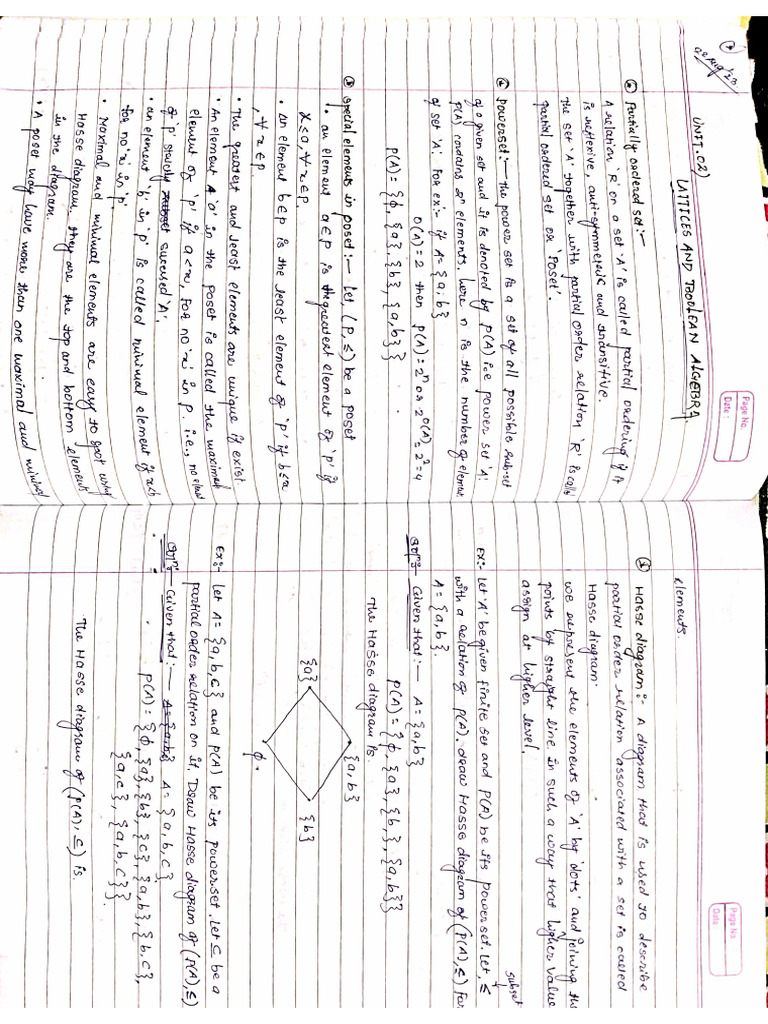 22 Aug'23
Page No.
Date :
UNIT.02)
LATTICES AND BOOLEAN ALGEBRA
Partially ordered set :-
A relation 'R' on a set 'A' is called partial ordering if A
is reflexive, anti-symmetric and transitive.
The set 'A' together with partial order relation 'R' is calle
partial ordered set or 'Poset'.
Powerset :- the power set is a set of all possible sub-set
of a given set and it is denoted by P(A) i.e power set 'A'.
P(A) contains 2ⁿ elements. here n is the number of elemen
of set 'A'. For ex:- if A = {a, b}
O(A) = 2 then P(A) = 2ⁿ or 2^O(A) = 2² = 4
P(A) = {ϕ, {a}, {b}, {a, b}}
Special elements in poset :- Let (P, ≤) be a poset
• an element a∈P is the greatest element of 'P' if
x≤a, ∀ x∈P.
• An element b∈P is the least element of 'P' if b≤x
, ∀ x∈P.
• The greatest and least elements are unique if exist
• An element 'a' in the poset is called the maximal
element of 'P' if a<x, for no 'x' in P. i.e., no elemt
of 'P' strictly succeed 'A'.
• an element 'b' in 'P' is called minimal element if x<b
for no 'x' in 'P'.
• Maximal and minimal elements are easy to spot using
Hasse diagram. they are the top and bottom elements
in the diagram.
• A poset may have more than one maximal and minimal
Page No.
Date
elements.
Hasse diagram :- A diagram that is used to describe
partial order relation associated with a set is called
Hasse diagram.
we represent the elements of 'A' by 'dots' and joining the
points by straight line in such a way that higher value
assign at higher level.
subset
Ex:- Let 'A' be given finite set and P(A) be its power set. Let, ≤
with a relation of P(A). draw Hasse diagram of (P(A), ≤) for
A = {a, b}.
Solⁿ:- Given that :- A = {a, b}
P(A) = {ϕ, {a}, {b}, {a, b}}
The Hasse diagram is.
{a, b}
{a}
{b}
ϕ.
Ex:- Let A = {a, b, c} and P(A) be its power set. Let ⊂ be a
partial order relation on it. Draw Hasse diagram of (P(A), ≤)
Solⁿ:- Given that :- A = {a, b, c}
P(A) = {ϕ, {a}, {b}, {c}, {a, b}, {b, c},
{a, c}, {a, b, c}}.
The Hasse diagram of (P(A), ⊆) is.